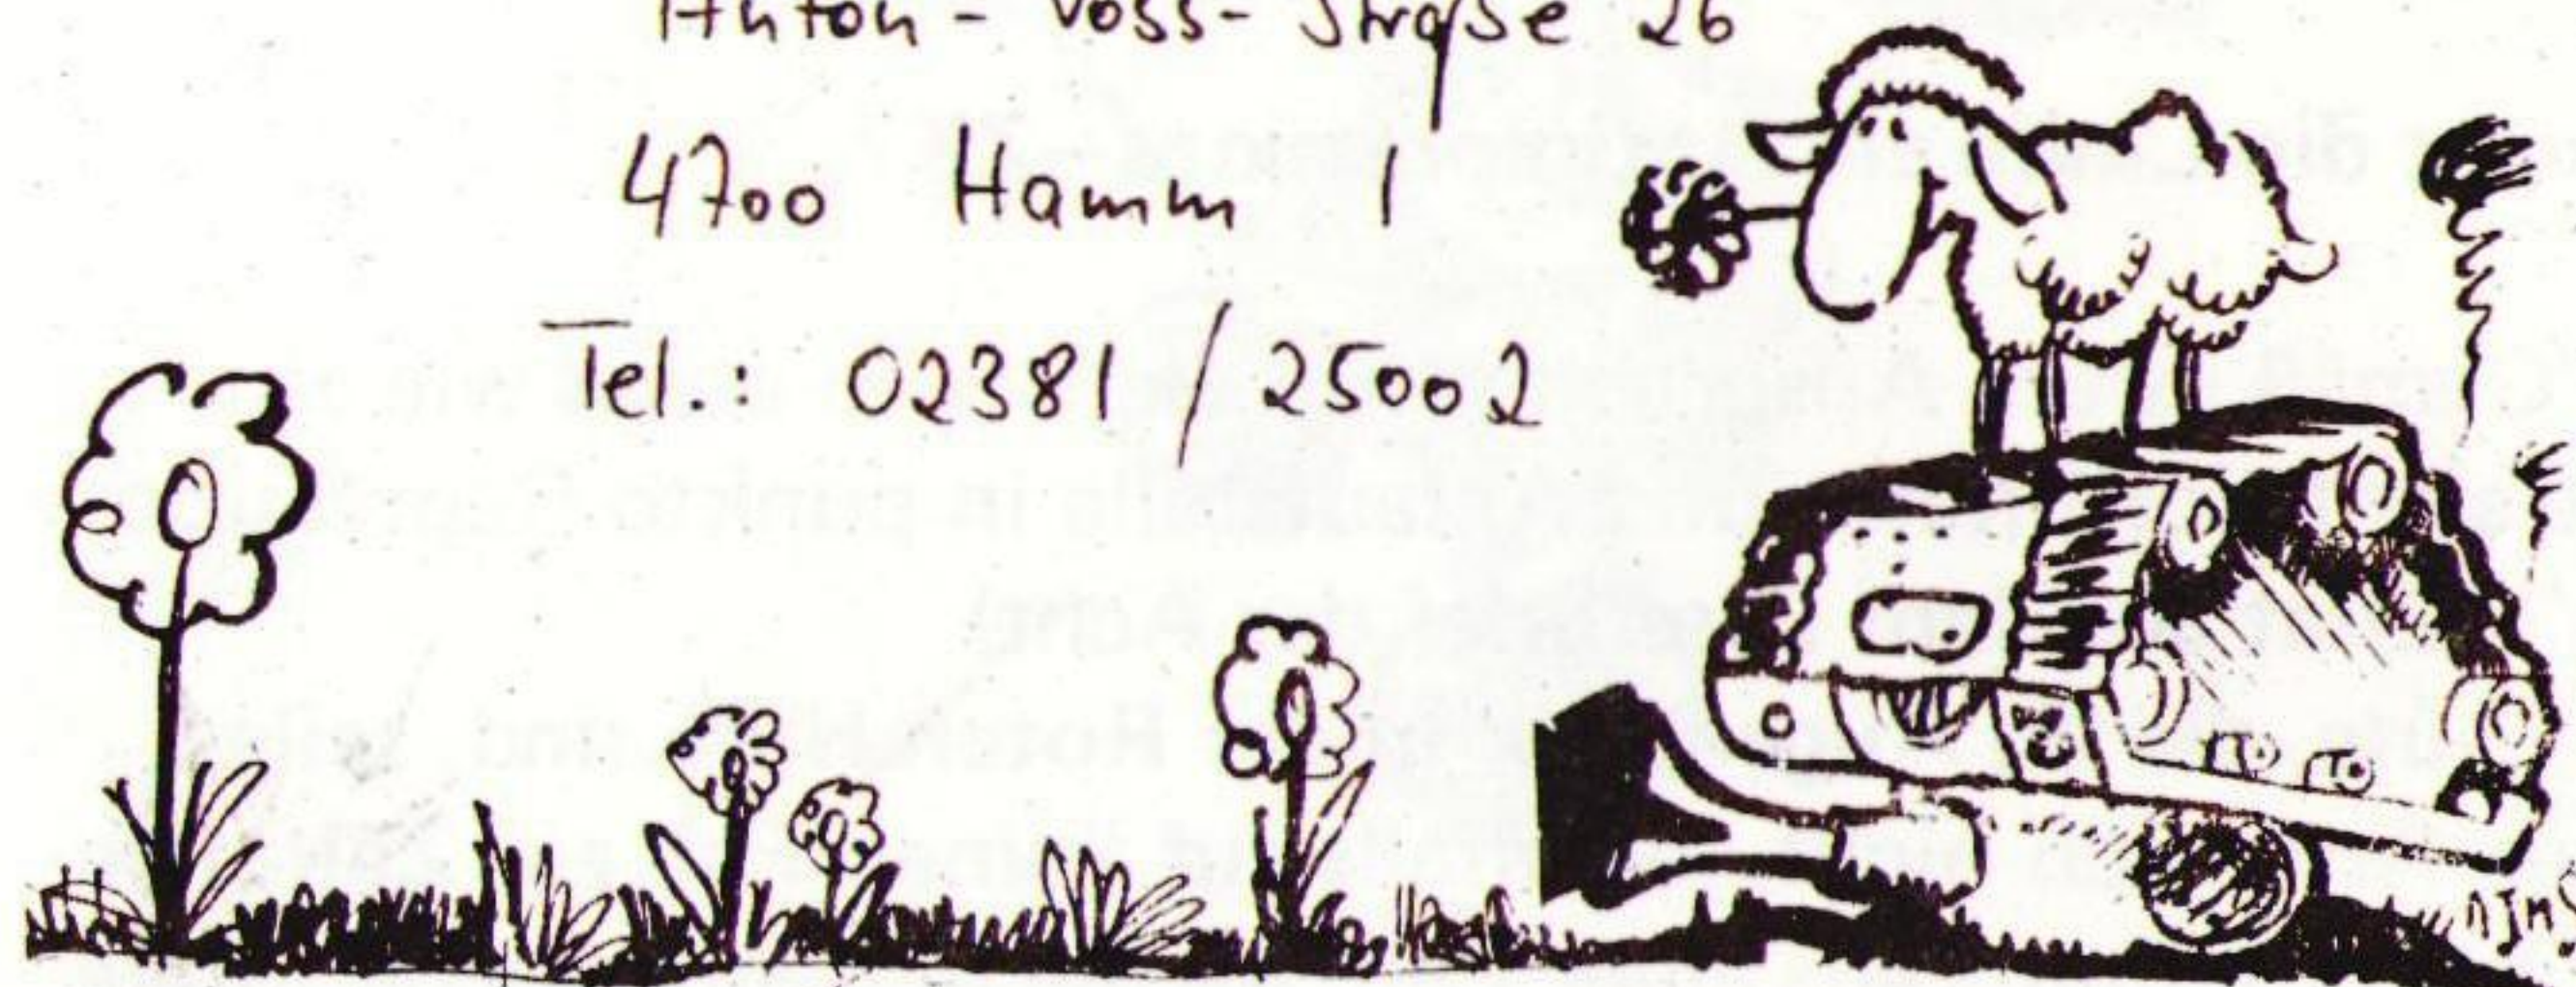 Anton - Voss - Straße 26
4700 Hamm 1
Tel.: 02381 / 25002